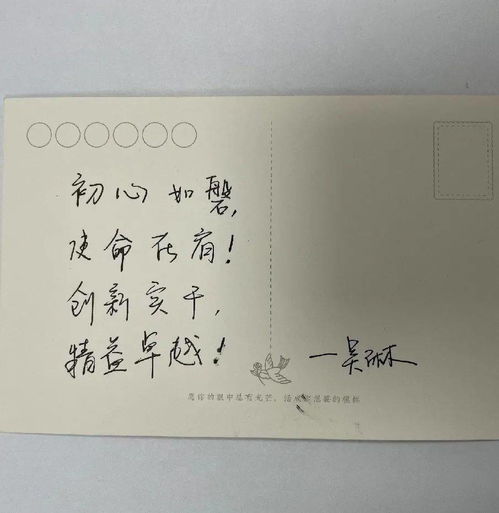 初心如磐,
使命在肩!
创新实干,
精益卓越!
一吴琳
愿你的眼中总有光芒,活成你想要的模样